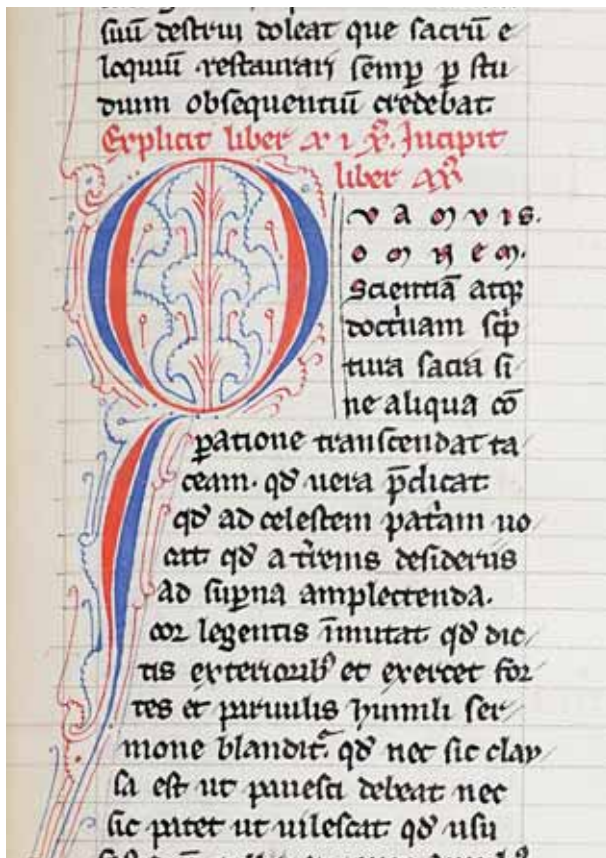 suū destrui doleat que sacrū e
loquiū restaurari semp̄ p stu
dium obsequentiū credebat.
Explicit liber x i x̊. Incipit
liber xx̊
Q v a m v i s.
o m n e m.
Scientiā atqꝫ
doctⁱnam scⁱp
tura sacra si
ne aliqua cō
paratione transcendat ta
ceam. qđ uera p̄dicat.
qđ ad celestem patⁱam uo
cat. qđ a tr̄enis desideriis
ad sup̄na amplectenda.
cor legentis īmutat. qđ dic
tis exteriorib᾽ et exercet for
tes et paruulis humili ser
mone blandit᾽. qđ nec sic clau
sa est ut pauesci debeat nec
sic patet ut uilescat. qđ usu